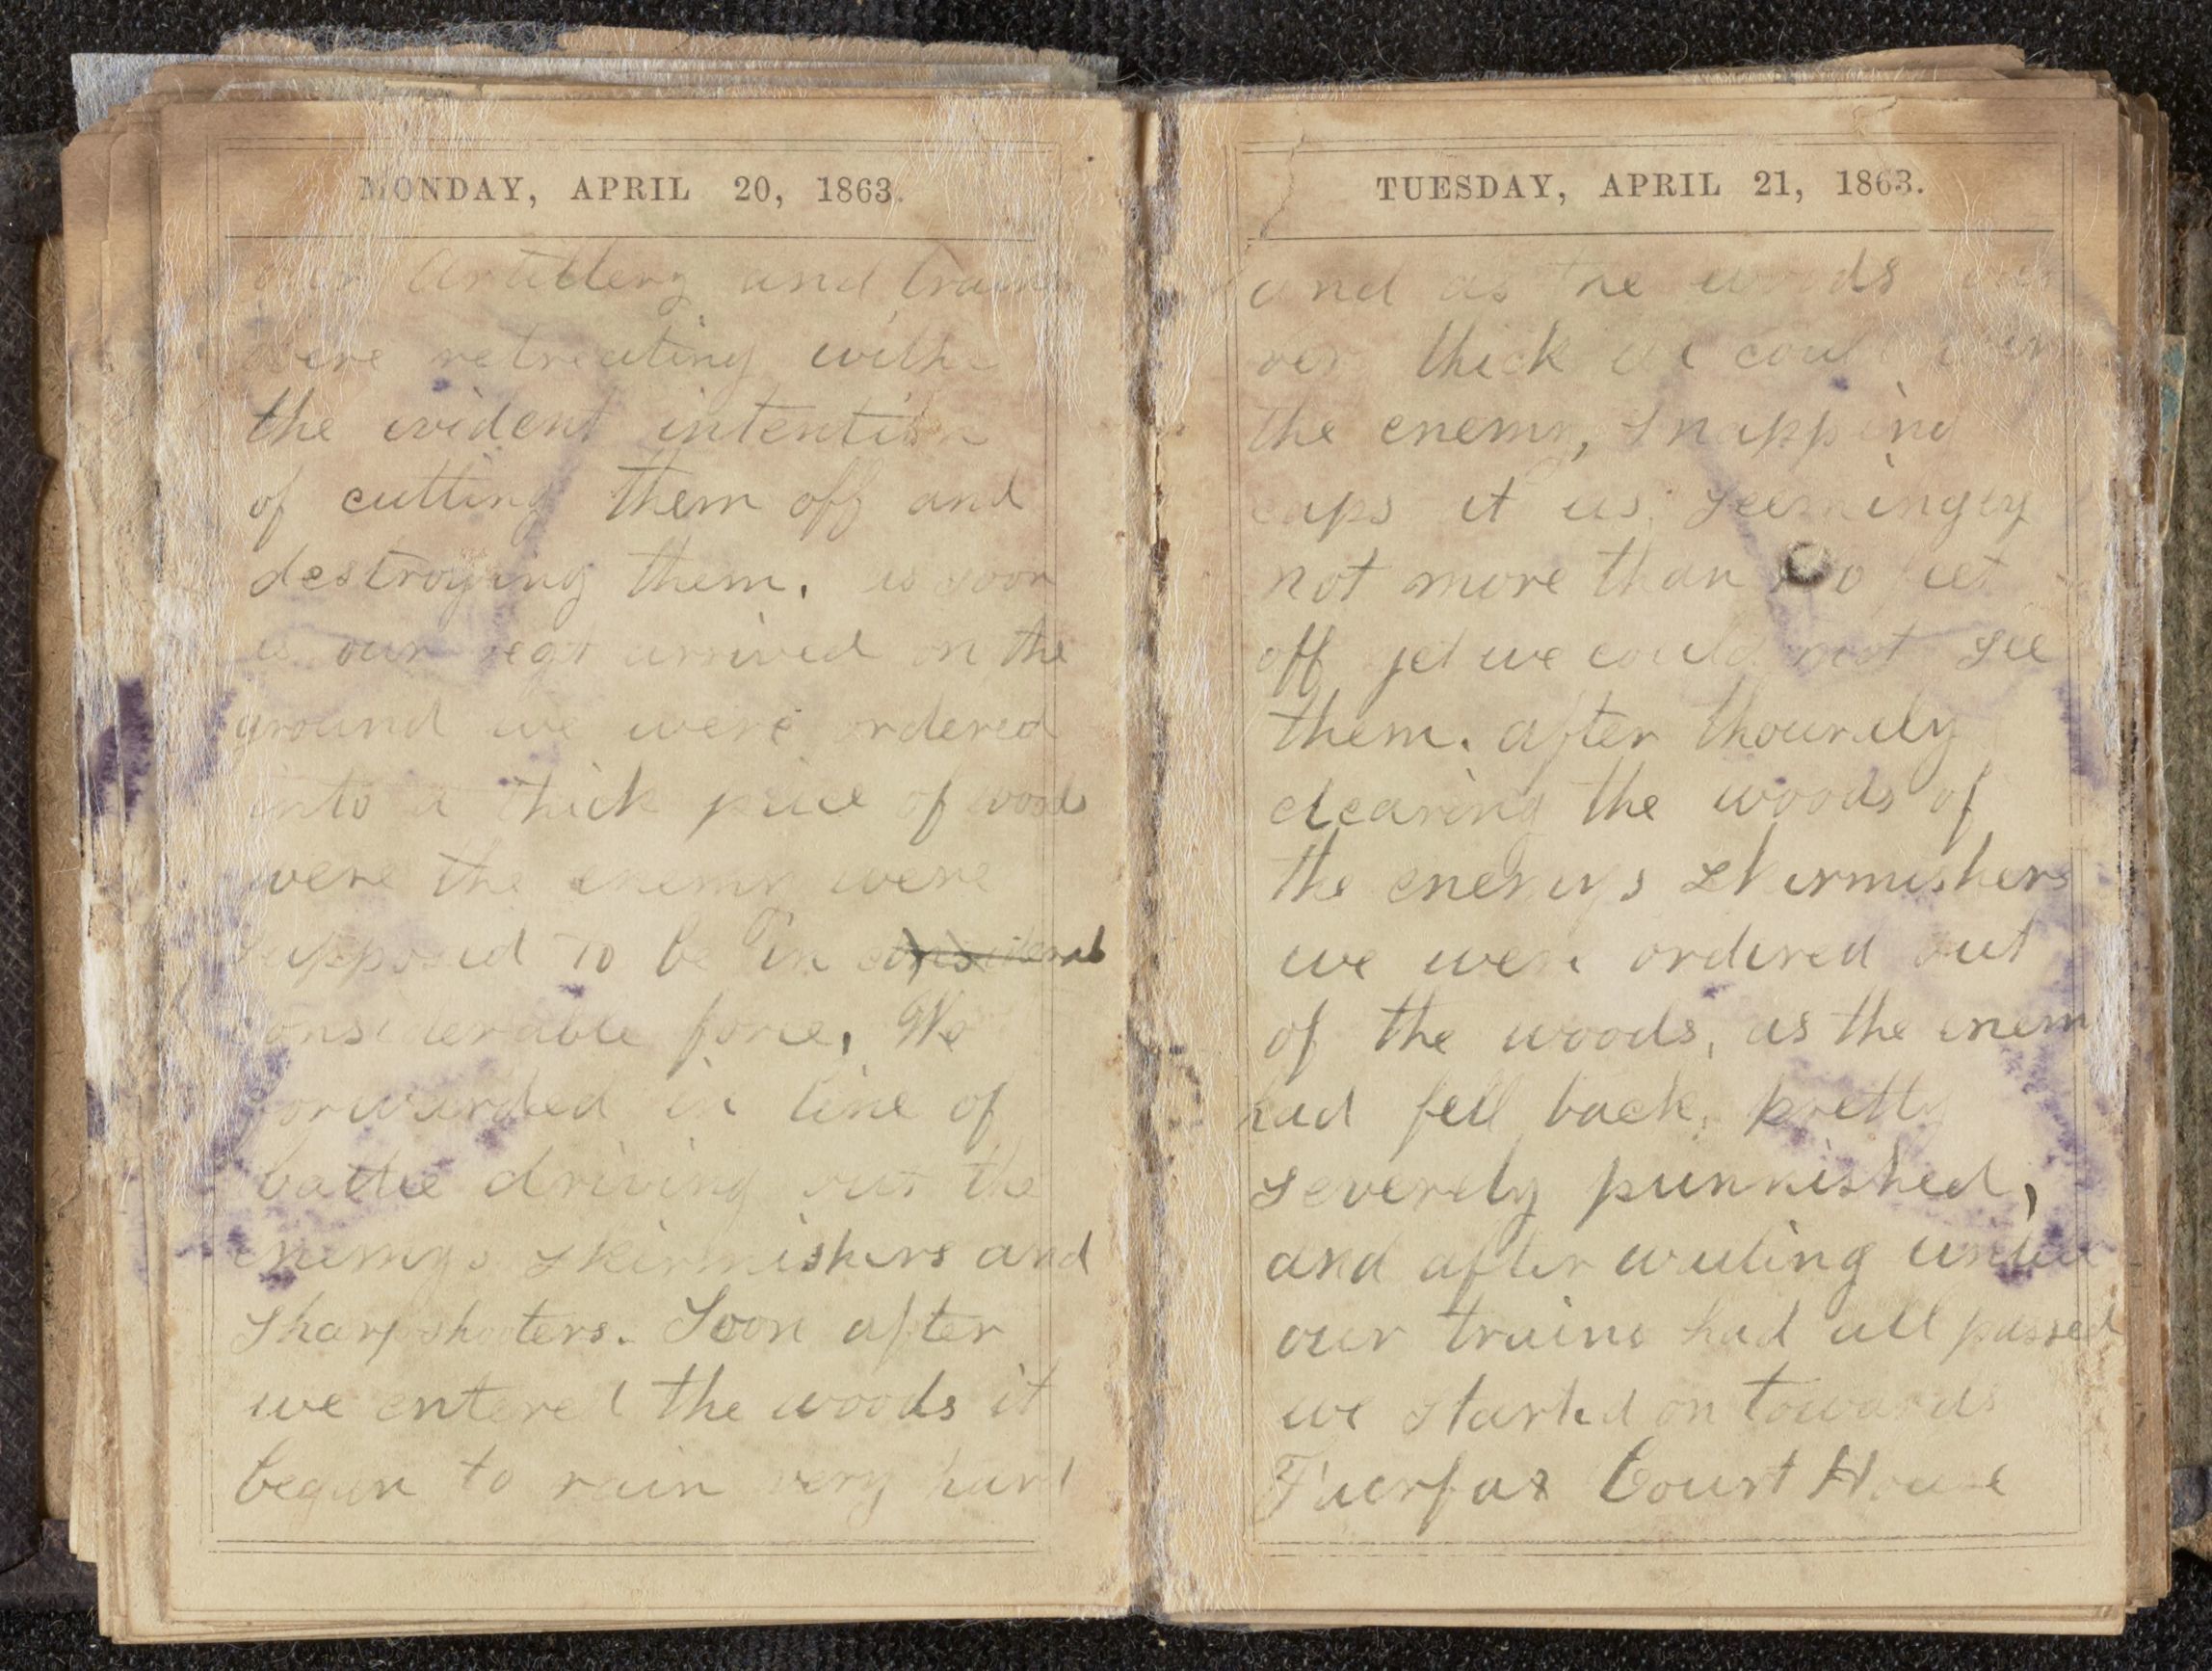 MONDAY, APRIL 20, 1863.
our Artillery and trains
were retreating with
the evident intention
of cutting them off and
destroying them. as soon
as our regt arrived on the
ground we were ordered
into a thick peice of woods
were the enemy were
supposed to be in considerab
considerable force, We
forwarded in line of
battle driving out the
enemys skirmishers and
sharpshooters. Soon after
we entered the woods it
began to rain very hard
TUESDAY, APRIL 21, 1863.
and as the woods
thick we could
the enemy, snapping
caps at us seemingly
not more than feet
off yet we could not see
them. after thouraly
clearing the woods of
the enemys skirmishers
we were ordered out
of the woods, as the enemy
had fell back, pretty
severely punnished,
and after waiting untill
our trains had all passed
we started on towards
Fairfax Court House